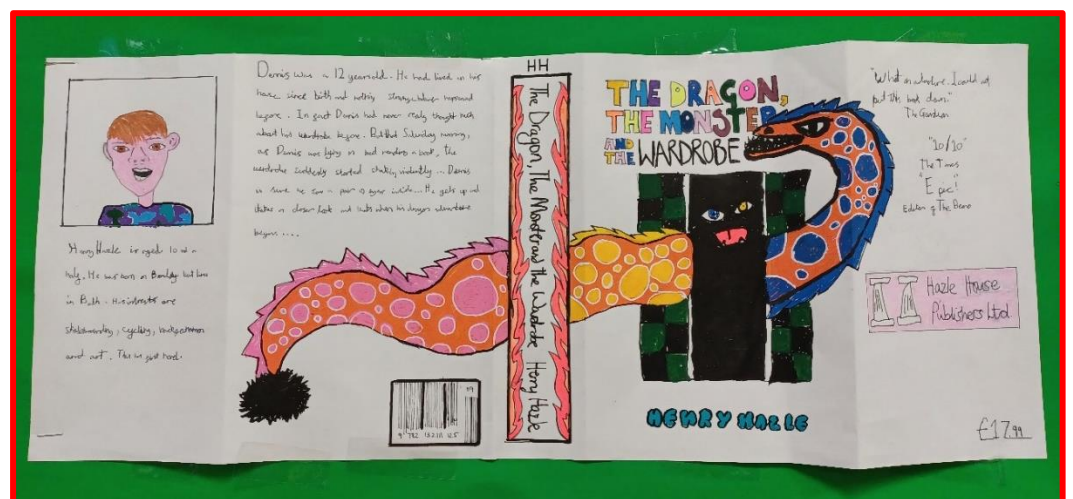 Harry Hazle is aged 10 and a
half. He was born in but lives
in Bath. His interests are
skateboarding, cycling,
and art. This is his first novel.
Dennis was a 12 year old. He had lived in his
house since birth and nothing strange had ever happened
before. In fact Dennis had never really thought much
about his wardrobe before. But that Saturday morning,
as Dennis was lying in bed reading a book, the
wardrobe suddenly started shaking violently... Dennis
is sure he saw a pair of eyes inside... He gets up and
takes a closer look and that's when his dragon adventure
begins....
HH
The Dragon, The Monster and the Wardrobe Henry Hazle
THE DRAGON,
THE MONSTER
AND
THE WARDROBE
HENRY HAZLE
"What an adventure. I could not
put this book down."
The Guardian
"10/10"
The Times
"Epic!"
Editor of The Beano
Hazle House
Publishers Ltd
£17.99